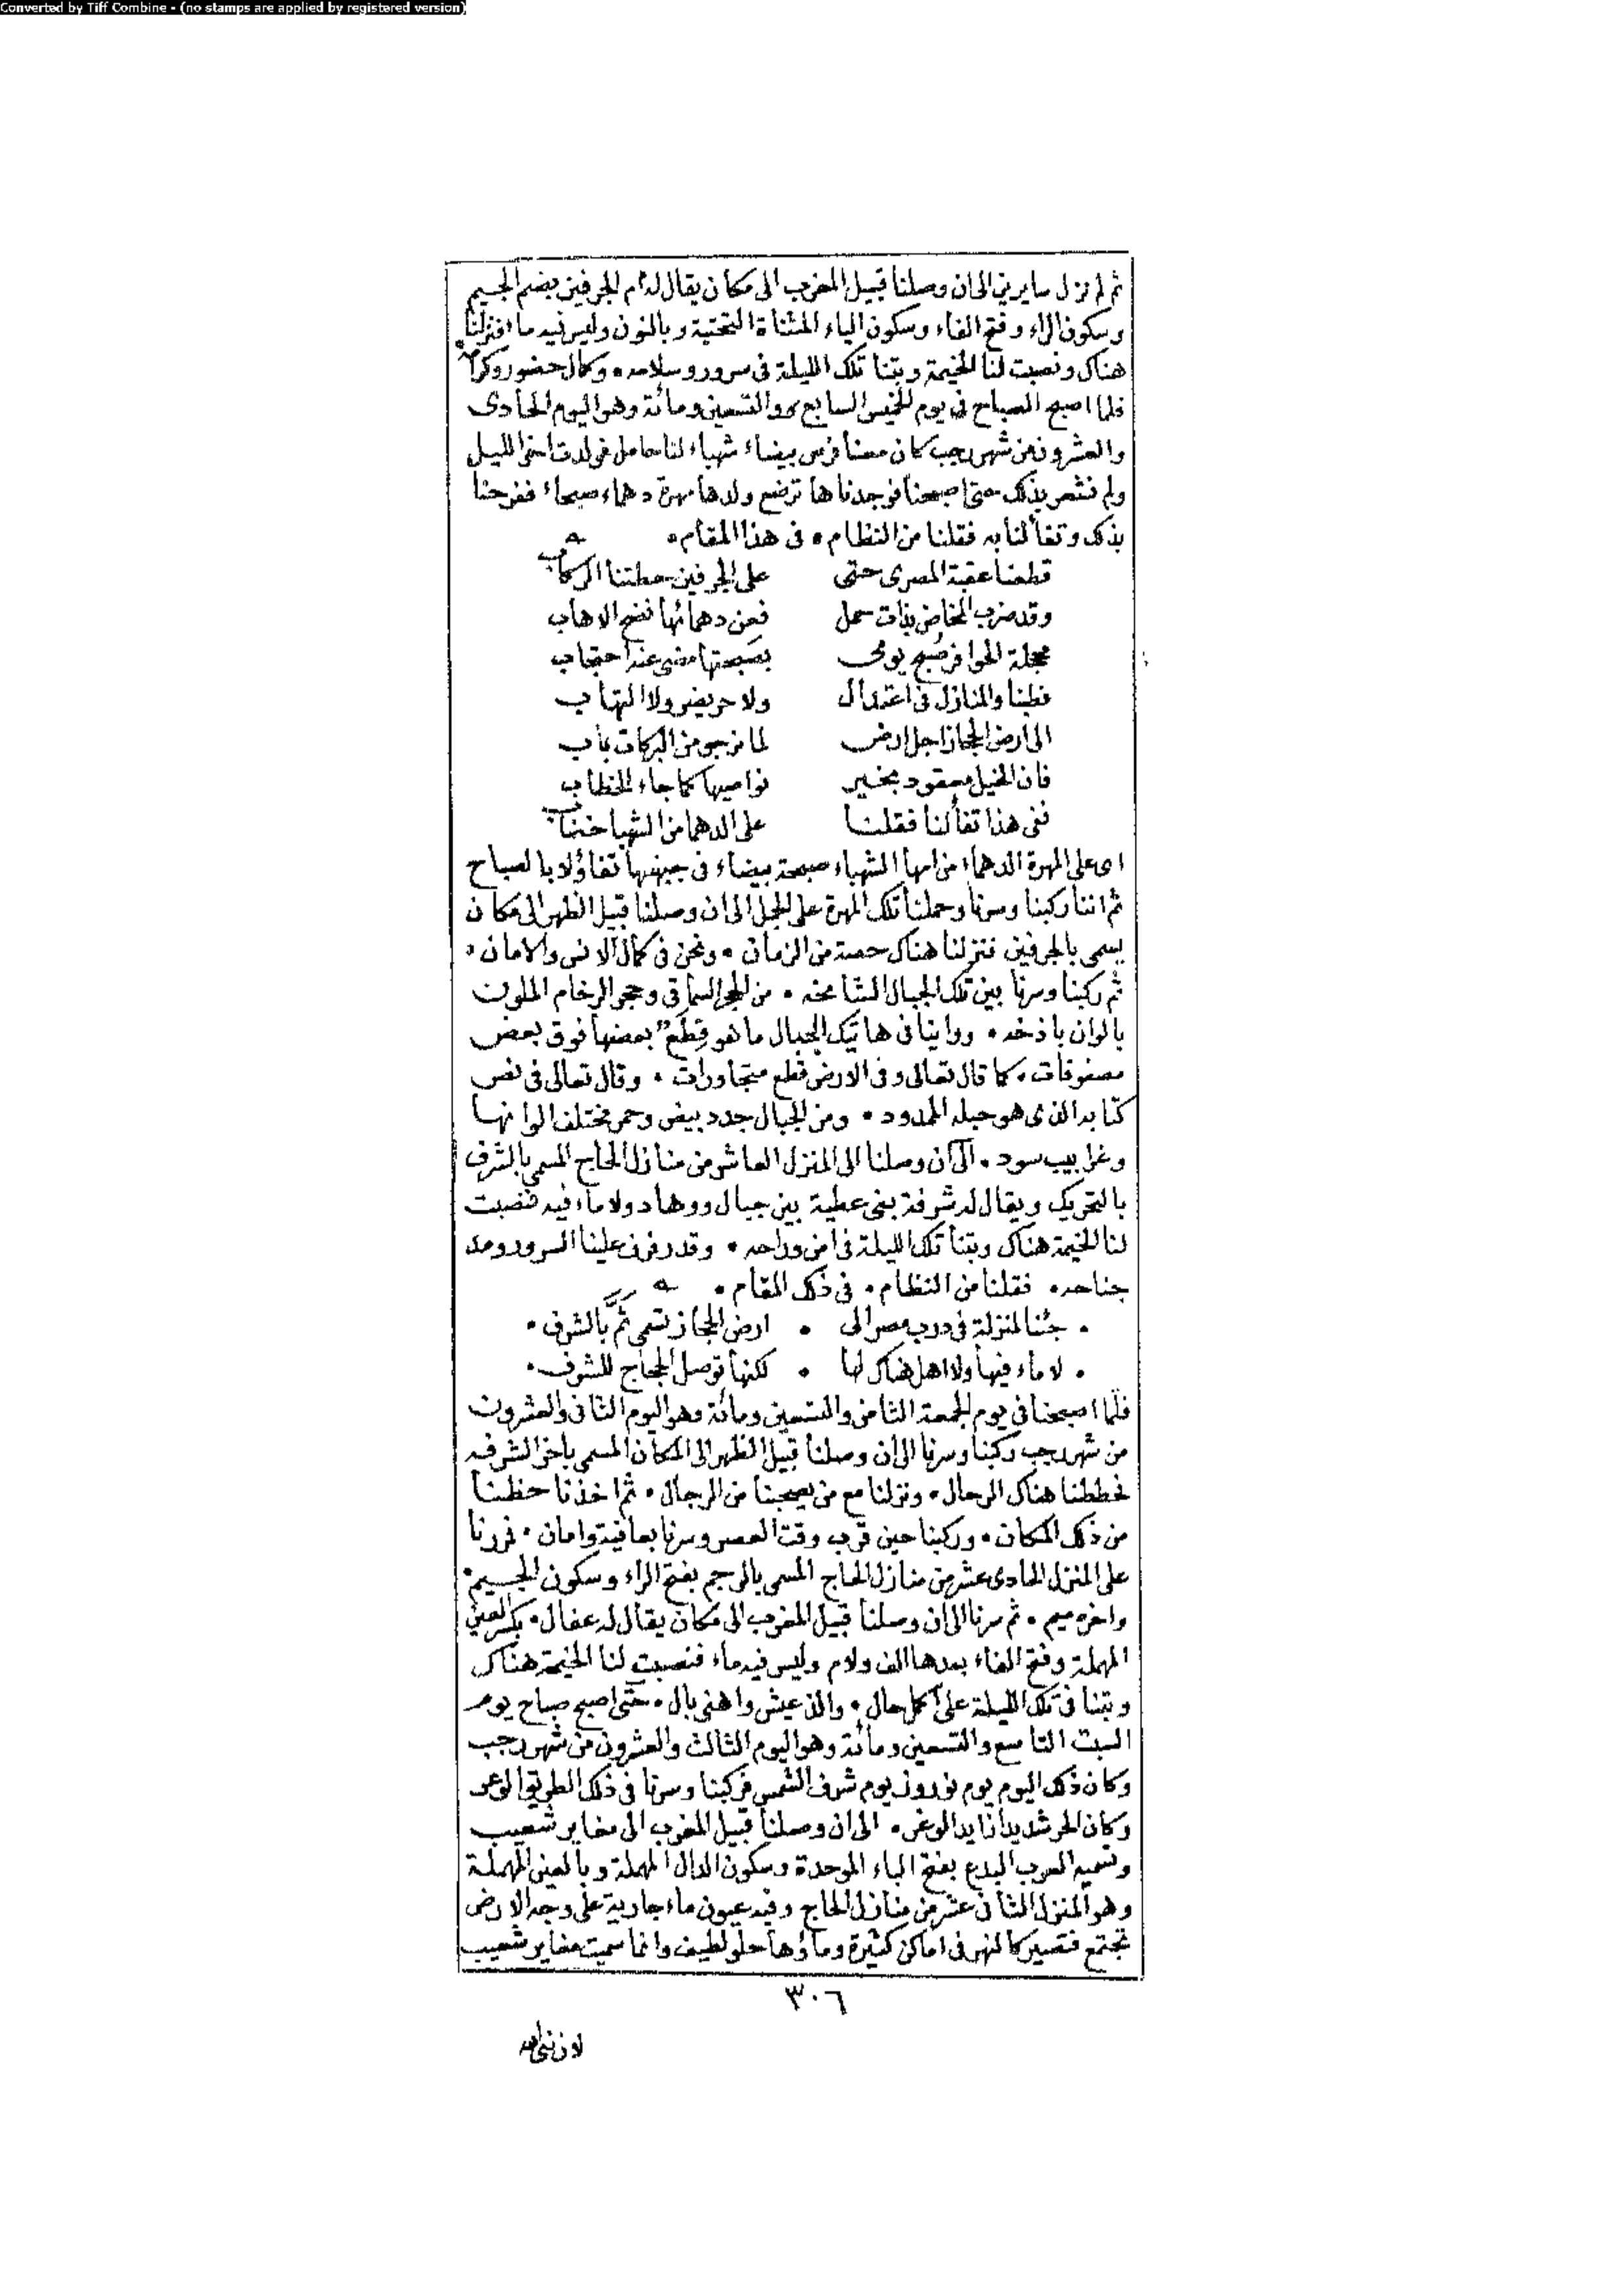 Converted by Tiff Combine - (no stamps are applied by registered version)
ثم لم نزل سايرين الى ان وصلنا قبيل المغرب الى مكان يقال له ام الجرفين بضم الجيم
وسكون الراء وفتح الفاء وسكون الياء المثناة التحتية وبالنون وليس فيه ماء فنزلنا
هناك ونصبت لنا الخيمة وبتنا تلك الليلة في سرور وسلامه • وكمال حضور وكرامه
فلما اصبح الصباح في يوم الخميس السابع والتسعين ومائة وهو اليوم الحادى
والعشرون من شهر رجب كان معنا فرس بيضاء شهباء لنا حامل فولدت اخر الليل
ولم نشعر بذلك حتى اصبحنا فوجدناها ترضع ولدها مهرة دهماء صبحاء ففرحنا
بذلك وتفألنا به فقلنا من النظام • في هذا المقام •
قطعنا عقبة المصرى حتى على الجرفين حطتنا الركاب
وقد ضرب المخاض بذات حمل فعن دهمائها فضح الاهاب
محجلة الحوافر صبح يومى بصبحتها مضى عنه احتجاب
فطبنا والمنازل في اعتدال ولا حر يضر ولا التهاب
الى ارض الحجاز اجل ارض لما نرجو من البركات باب
فان الخيل معقود بخير نواصيها كما جاء الخطاب
ففى هذا تفألنا فقلنا على الدهما من الشهبا
اى على المهرة الدهماء من امها الشهباء صبحة بيضاء في جبهتها تفاؤلا بالصباح
ثم اننا ركبنا وسرنا وحملنا تلك المهرة على الجمل الى ان وصلنا قبيل الظهر الى مكان
يسمى بالجرفين فنزلنا هناك حصة من الزمان • ونحن في كمال الانس والامان •
ثم ركبنا وسرنا بين تلك الجبال الشامخه • من الحجر السماقى وحجر الرخام الملون
بالوان باذخه • وراينا في هاتيك الجبال ما هو قِطَعٌ بعضها فوق بعض
مصفوفات • كما قال تعالى وفى الارض قطع متجاورات • وقال تعالى في نص
كتابه الذى هو حبله الممدود • ومن الجبال جدد بيض وحمر مختلف الوانها
وغرابيب سود • الى ان وصلنا الى المنزل العاشر من منازل الحاج المسمى بالشرف
بالتحريك ويقال له شرفة بنى عطية بين جبال ووهاد ولا ماء فيه فنصبت
لنا الخيمة هناك وبتنا تلك الليلة في امن وراحه • وقد رفرف علينا السرور ومد
جناحه • فقلنا من النظام • في ذلك المقام •
• جئنا لمنزلة في درب مصر الى • ارض الحجاز تسمى ثَمَّ بالشرف •
• لا ماء فيها ولا اهل هناك لها • لكنها توصل الحجاج للشرف •
فلما اصبحنا في يوم الجمعة الثامن والتسعين ومائة وهو اليوم الثانى والعشرون
من شهر رجب ركبنا وسرنا الى ان وصلنا قبيل الظهر الى المكان المسمى باخر الشرفه
فحططنا هناك الرحال • ونزلنا مع من يصحبنا من الرجال • ثم اخذنا حظنا
من ذلك المكان • وركبنا حين قرب وقت العصر وسرنا بعافية وامان • فمررنا
على المنزل الحادى عشر من منازل الحاج المسمى بالرجم بفتح الراء وسكون الجيم
واخره ميم • ثم سرنا الى ان وصلنا قبيل المغرب الى مكان يقال له عفال • بكسر العين
المهملة وفتح الفاء بعدها الف ولام وليس فيه ماء فنصبت لنا الخيمة هناك
وبتنا في تلك الليلة على اكمل حال • والذ عيش واهنى بال • حتى اصبح صباح يوم
السبت التاسع والتسعين ومائة وهو اليوم الثالث والعشرون من شهر رجب
وكان ذلك اليوم يوم نوروز يوم شرف الشمس فركبنا وسرنا في ذلك الطريق الوعر
وكان الحر شديدا زايد الوغر • الى ان وصلنا قبيل المغرب الى مغاير شعيب
وتسميه العرب البدع بفتح الباء الموحدة وسكون الدال المهملة وبالعين المهملة
وهو المنزل الثانى عشر من منازل الحاج وفيه عيون ماء جارية على وجه الارض
تجتمع فتصير كالنهر في اماكن كثيرة وماؤها حلو لطيف وانما سميت مغاير شعيب
٣٠٦
لان نبى الله